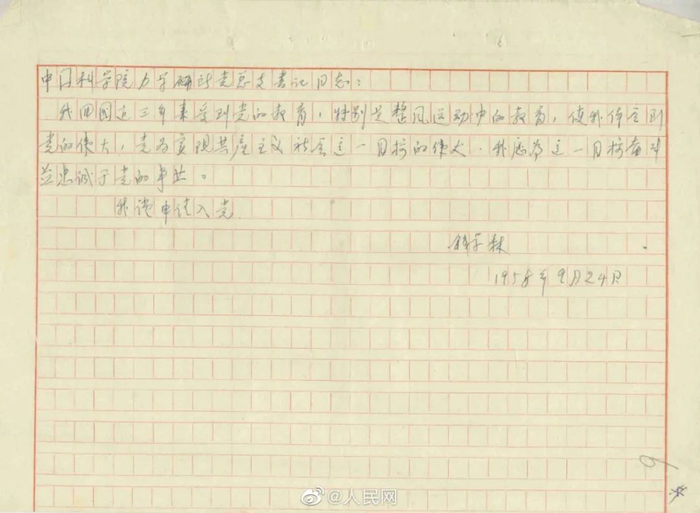 中国科学院力学研究所党总支书记同志：
我回国近三年来受到党的教育，特别是整风运动中的教育，使我体会到
党的伟大，党为实现共产主义社会这一目标的伟大．我愿为这一目标奋斗
并忠诚于党的事业。
我谨申请入党
钱学森
1958年9月24日
9
@人民网